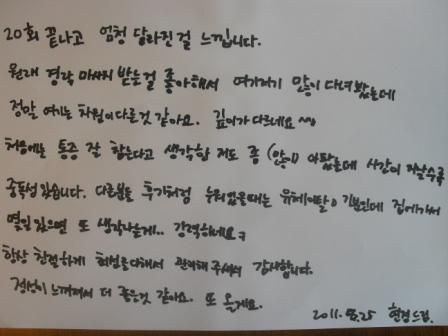 20회 끝나고 엄청 달라진걸 느낍니다.
원래 경락 마사지 받는걸 좋아해서 여기저기 많이 다녀봤는데
정말 여기는 차원이다른것 같아요. 깊이가 다르네요 ^^
처음에는 통증 잘 참는다고 생각한 저도 좀 (많이) 아팠는데 시간이 지날수록
중독성 있습니다. 다른분들 후기처럼 누워있을때는 유체이탈 기분인데 집에가서
몇일 있으면 또 생각나는게.. 강력하네요ㅋ
항상 친절하게 최선을다해서 관리해 주셔서 감사합니다.
정성이 느껴져서 더 좋은것 같아요. 또 올게요.
2011. 8. 25 현경드림.